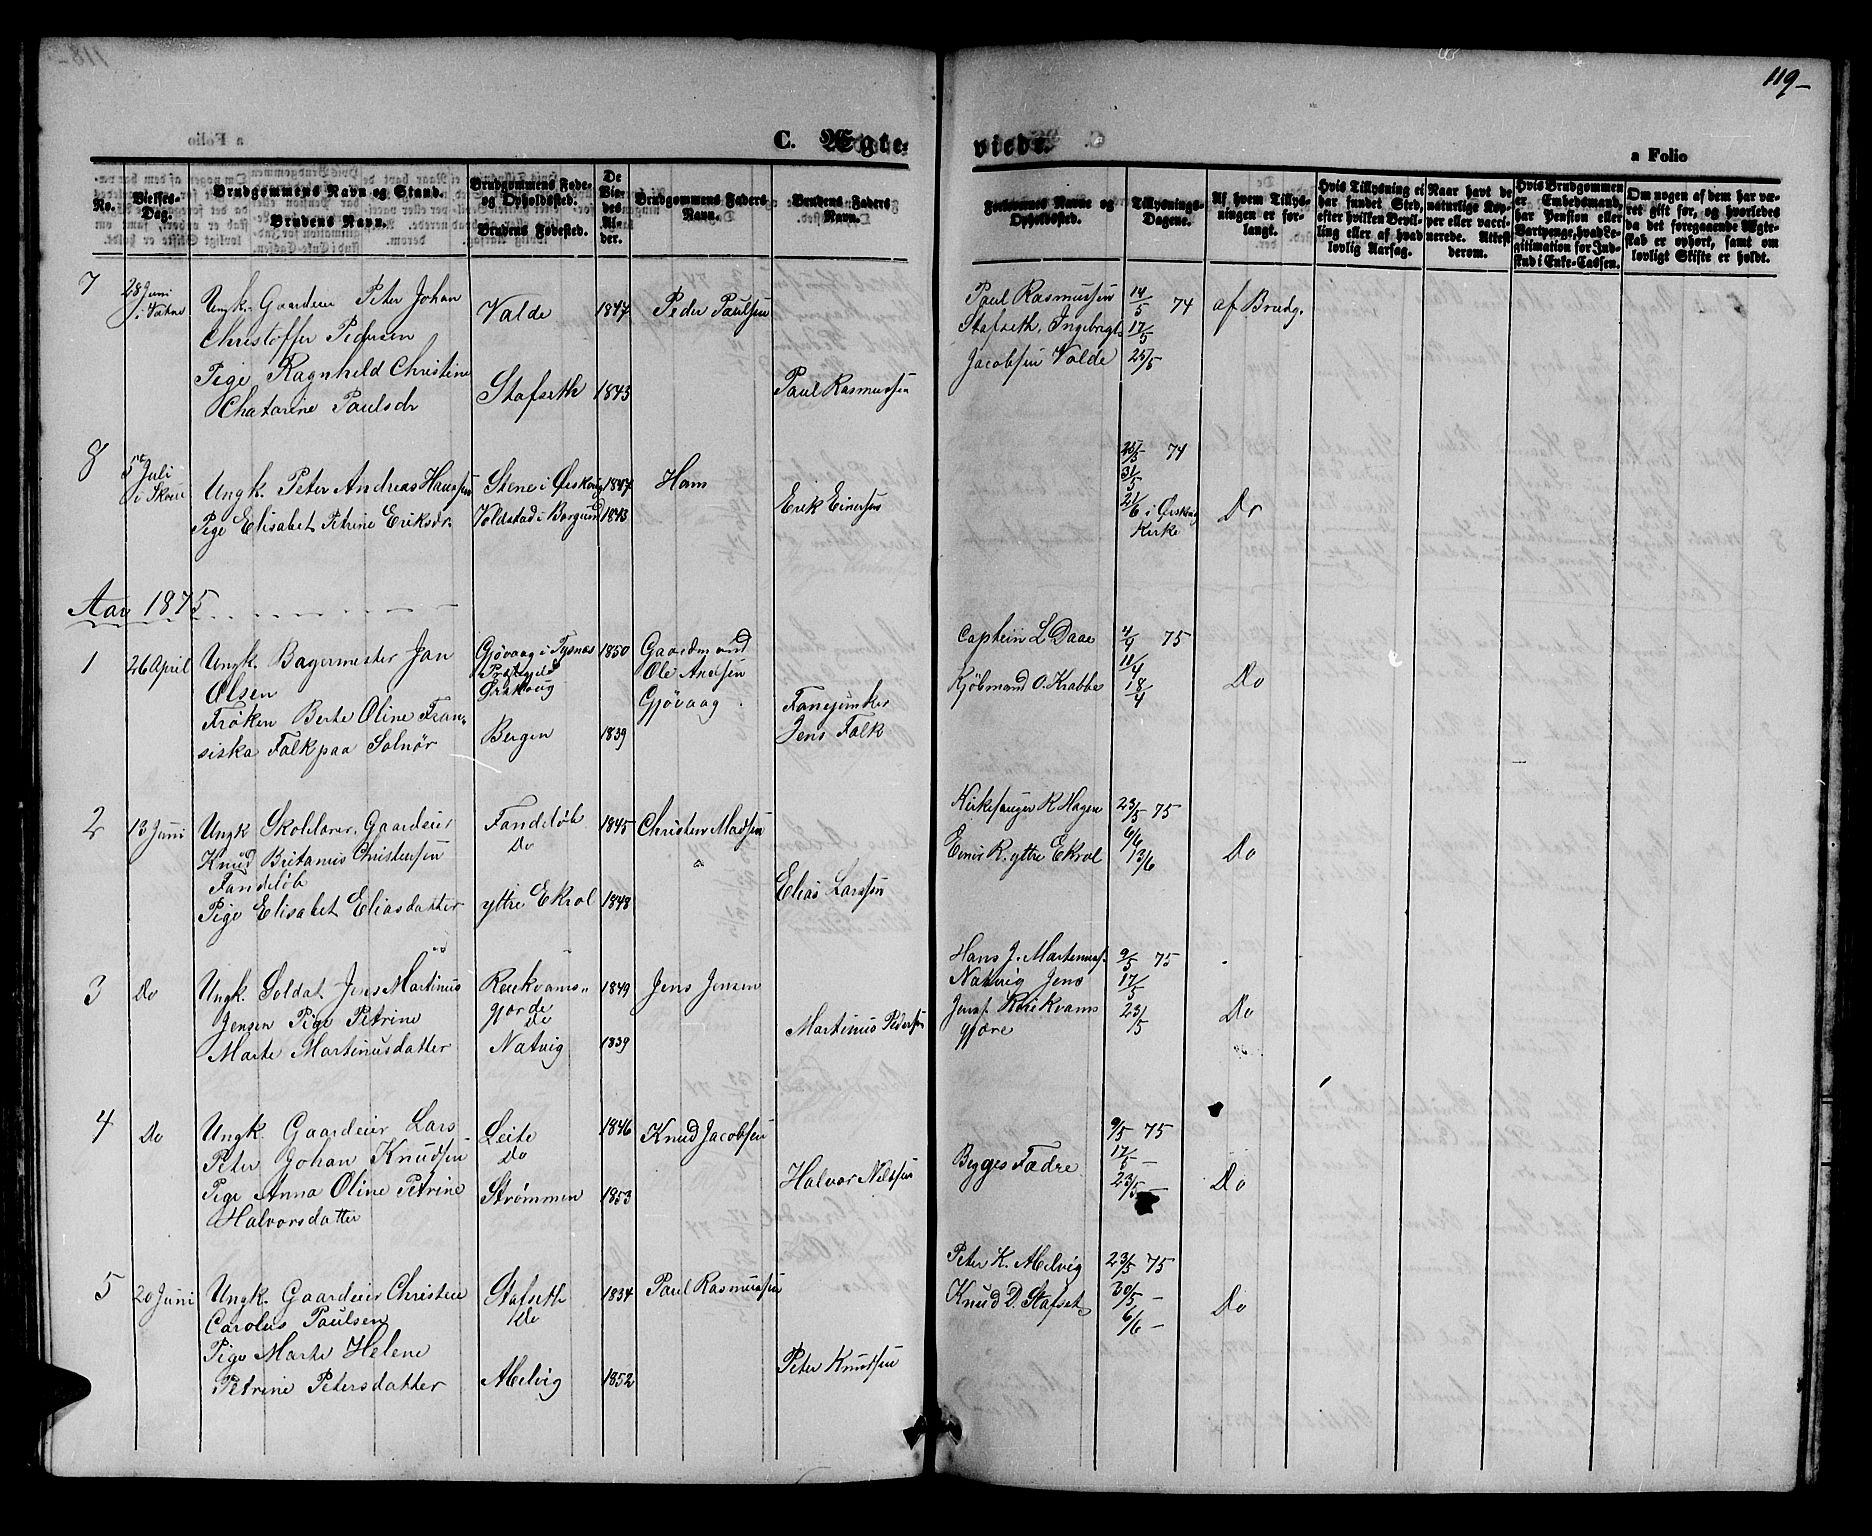 119-
C. Ægte-
viede.
a Folio
No.
Vielses-Dag.
Brudgommens Navn og Stand.
Brudens Navn.
Brudgommens Føde- og Opholdssted.
Brudens Fødested.
De Viedes Alder.
Brudgommens Faders Navn.
Brudens Faders Navn.
Forlovernes Navne og Opholdssted.
Tillysnings-Dagene.
Af hvem Tillysningen er forlangt.
Hvis Tillysning ei har fundet Sted, efter hvilken Bevilling eller af hvad lovlig Aarsag.
Naar havt de naturlige Kopper eller vaccinerede. Attest derom.
Hvis Brudgommen er Embedsmand, har Pension eller Vartpenge, hvad Legitimation for Indskud i Enke-Cassen.
Om nogen af dem har været gift før, og hvorledes da det foregaaende Ægteskab er ophørt, samt om lovligt Skifte er holdt.
7 28 Juni i Vatne Ungk. Gaardeier Peter Johan Valde 1847 Peder Paulsen Paul Rasmussen 14/5 74 af Brudg.
Christoffer Pedersen Stafseth, Ingebrigt 17/5
Pige Ragnhild Christine Stafseth 1843 Paul Rasmussen Jacobsen Valde 25/5
Chatarine Paulsdr
8 5te Juli i Skoue Ungk. Peter Andreas Hanssen Stene i Ørskoug 1847 Hans 25/5 74
31/5
Pige Elisabet Petrine Eriksdr. Voldstad i Borgund 1843 Erik Einersen 21/6 i Ørskoug Kirke Do
Aar 1875
1 26 April Ungk. Bagermester Jan Gjøvaag i Tysnæs 1850 Gaardmand Captein L Daae 4/4 75
Olsen Præstegjeld Ørskoug Ole Andsen Gjøvaag 11/4
Frøken Berte Oline Fran- Fanejunker Kjøbmand O. Krabbe 18/4 Do
siska Falk paa Solnør Bergen 1839 Jens Falk
2 13 Juni Ungk Skolelærer, Gaardeier Fandeløb 1845 Christen Madsen Kirkesanger K Hagen 23/5 75
Knud Britanius Christensen Do 6/6
Fandeløb Einer R. yttre Ekrol 13/6 Do
Pige Elisabet Eliasdatter yttre Ekrol 1848 Elias Larssen
3 Do Ungk. Soldat Jens Martinus Rekkvams- 1849 Jens Jensen Hans J. Martinus. 9/5 75
Jensen Pige Petrine gjorde Do Natvig Jens 17/5
Marte Martinusdatter Natvig 1839 Martinus Pedersen Jensf Rekkvams 23/5 Do
gjære
4 Do Ungk. Gaardeier Lars Leite 1846 Knud Jacobsen 9/5 75
Peter Johan Knudsen Do Begges Fædre 17/5 -
Pige Anna Oline Petrine Strømmen 1853 Halvor Nilssen 23/5 - Do
Halvorsdatter
5 20 Juni Ungk. Gaardeier Christen Stafseth 1834 Paul Rasmussen Peter K. Melvig 23/5 75
Carolus Paulsen Do Knud D. Stafset 30/5 - Do
Pige Marte Helene 6/6 -
Petrine Petersdatter Melvig 1852 Peter Knudsen